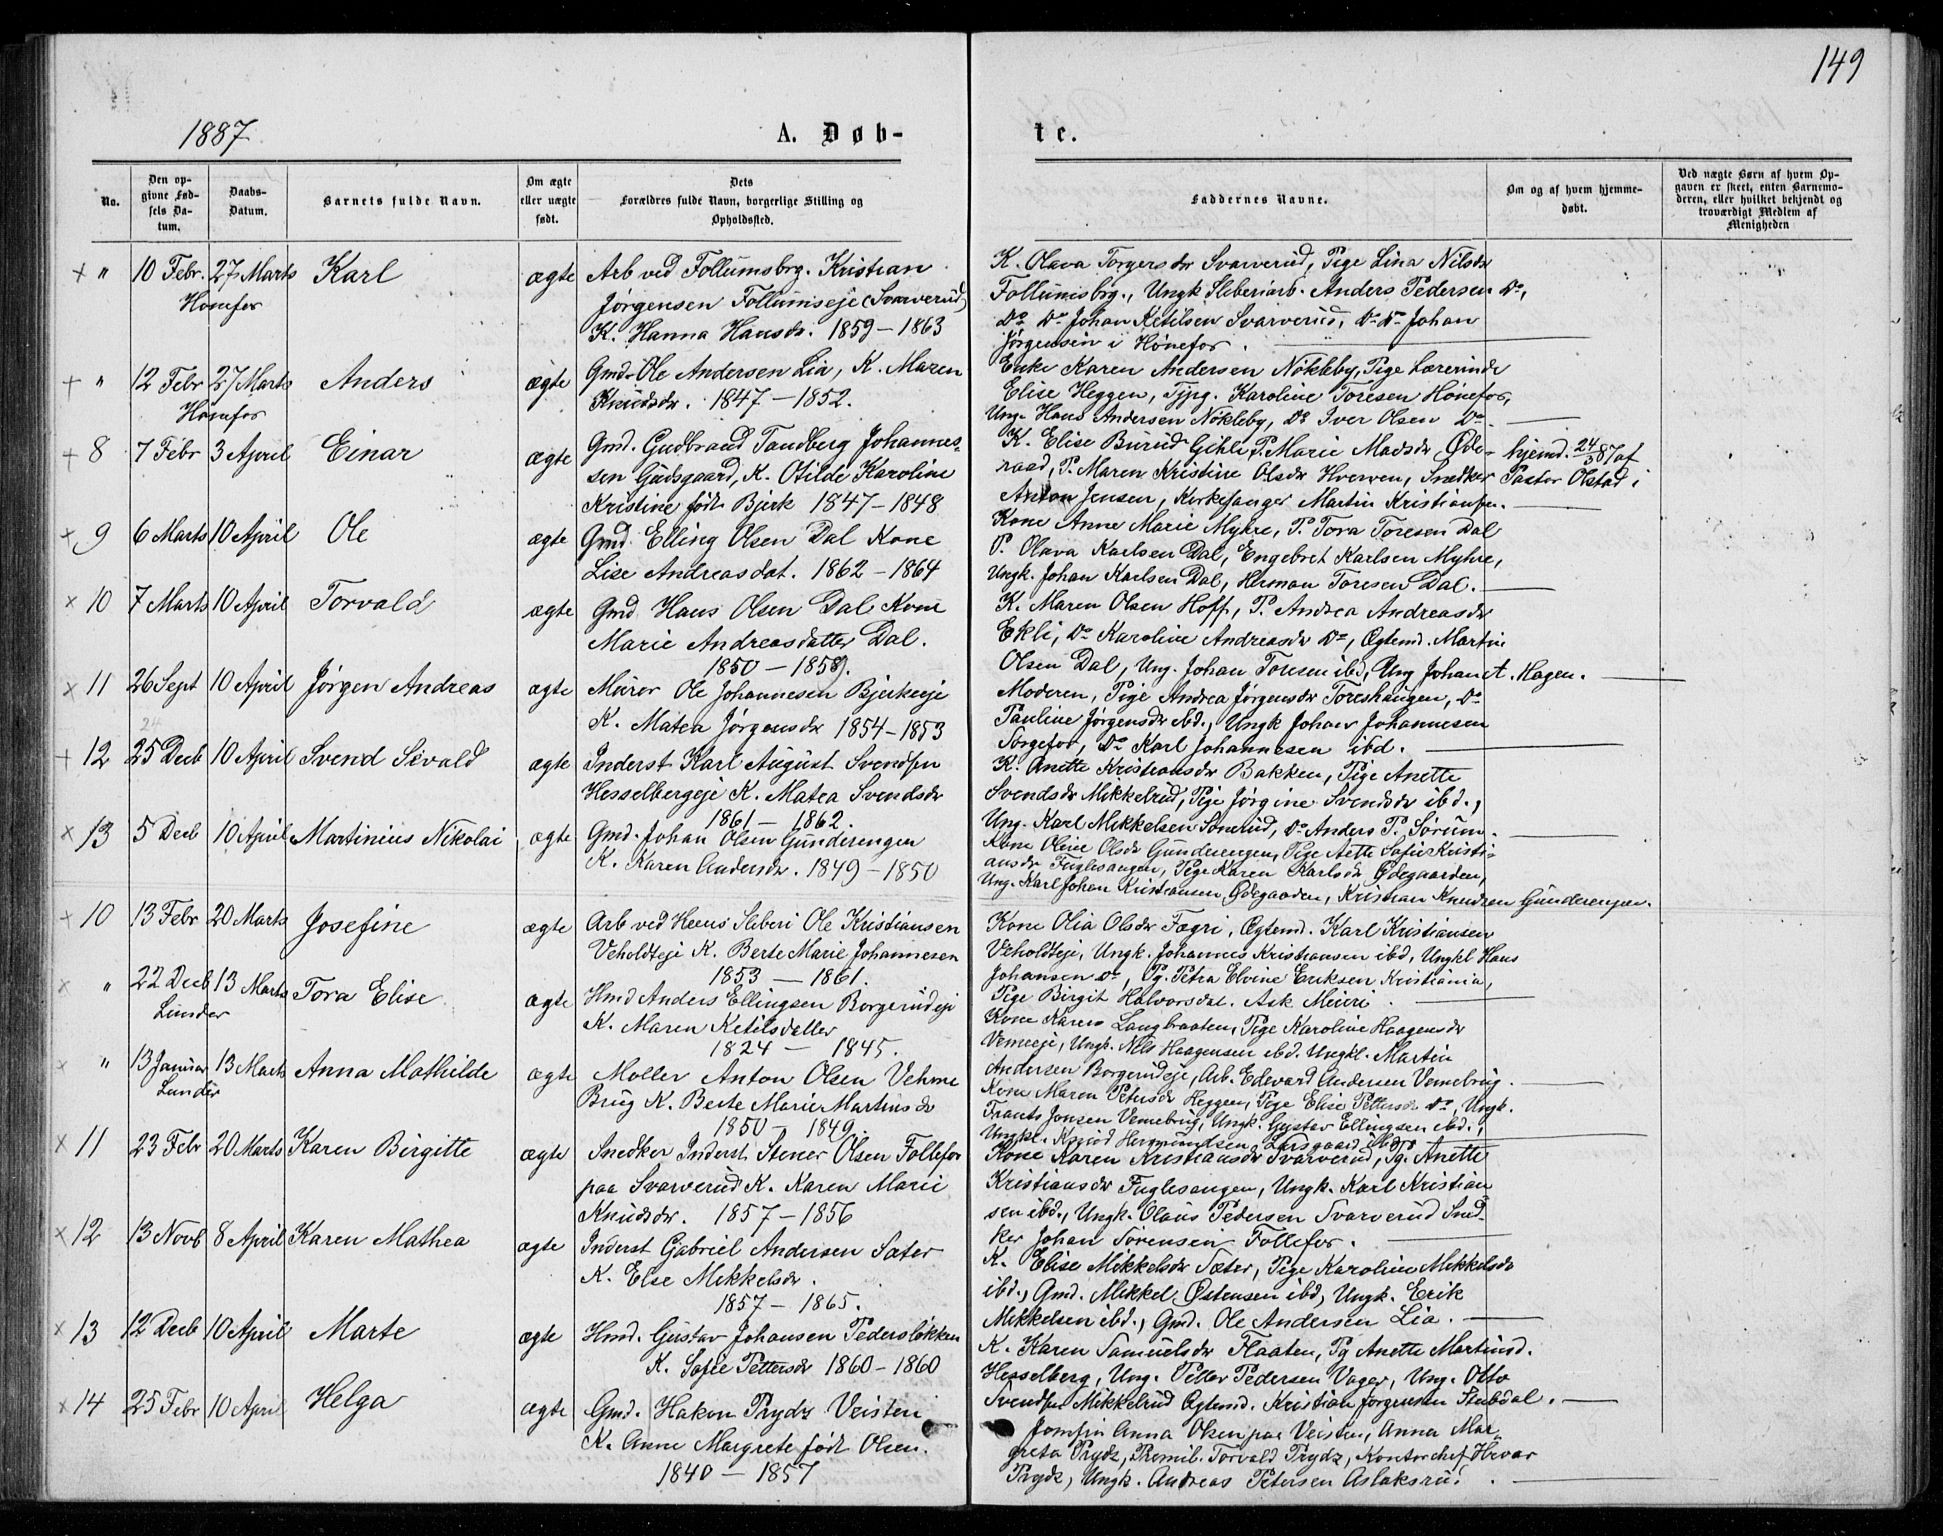 149
1887.
A. Døb-
te.
No.
Den op-
givne Fød-
sels Da-
tum.
Daabs-
Datum.
Barnets fulde Navn.
Om ægte
eller uægte
født.
Dets
Forældres fulde Navn, borgerlige Stilling og
Opholdssted.
Faddernes Navne.
Om og af hvem hjemme-
døbt.
Ved uægte Børn af hvem Op-
gaven er skeet, enten Barnemo-
deren, eller hvilket bekjendt og
troværdigt Medlem af
Menigheden
+ " 10 Febr. 27 Marts Karl ægte Arb ved Follumsbrg. Kristian
Hønefos
Jørgensen Follumseje (Svarverud)
K. Hanna Hansdr. 1859 – 1863
K. Olava Torgersdr Svarverud, Pige Lina Nilsdr
Follumsbrg., Ungk Sleberiarb. Anders Pedersen Do,
Do Do Johan Ketilsen Svarverud, Do Do Johan
Jørgensen i Hønefos.
+ " 12 Febr 27 Marts Anders ægte Gmd Ole Andersen Lia, K. Maren
Hønefos
Knudsdr. 1847 – 1852.
Enke Karen Andersen Nökleby, Pige Lærerinde
Elise Heggen, Tjpg. Karoline Toresen Hönefos,
Ung. Hans Andersen Nökleby, Do Iver Olsen Do.
+ 8 7 Febr 3 April Einar ægte Gmd. Gudbrand Tandberg Johannes-
sen Gudsgaard, K. Otilde Karoline
Kristine født Bjerk 1847 – 1848
K. Elise Burud Gihle, P. Marie Madsdr Øde-
raad, P. Maren Kristine Olsdr Hverven, Snedker
Anton Jensen, Kirkesanger Martin Kristiansen.
hjemd. 24/3 87 af
Pastor Olstad i
× 9 6 Marts 10 April Ole ægte Gmd. Elling Olsen Dal Kone
Lise Andreasdat. 1862 – 1864
Kone Anne Marie Myhre, P. Tora Toresen Dal
P. Olava Karlsen Dal, Engebret Karlsen Myhre,
Ungk. Johan Karlsen Dal, Herman Toresen Dal.
× 10 7 Marts 10 April Torvald ægte Gmd. Hans Olsen Dal Kone
Marie Andreasdatter Dal.
1850 – 1859.
K. Maren Olsen Hoff, P. Andrea Andreasdr
Ekli, Do Karoline Andreasdr Do, Ogtemd. Martin
Olsen Dal, Ung. Johan Toresen ibd, Ung Johan A. Hagen.
× 11 26 Sept 10 April Jørgen Andreas ægte Murer Ole Johannesen Bjerkeeje
K. Matea Jørgensdr 1854 – 1853
Moderen, Pige Andrea Jørgensdr Toreshaugen, Do
Pauline Jørgensdr ibd., Ungk Johan Johannesen
Sørgefos, Do Karl Johannesen ibd.
24
+ 12 25 Decb 10 April Svend Sivald ægte Inderst Karl August Svendsen
Hesselbergeje K. Matea Svendsdr
1861 – 1862.
K. Anette Kristiansdr Bakken, Pige Anette
Svendsdr Mikkelrud, Pige Jørgine Svendsdr ibd.,
Ung. Karl Mikkelsen Sonerud, Do Anders P. Sørum.
× 13 5 Decb 10 April Martinius Nikolai ægte Gmd. Johan Olsen Gunderengen
K. Karen Andersdr. 1849 – 1850
Kone Oline Olsdr Gunderengen, Pige Sofie Kristi-
ansdr Fuglesangen, Pige Karen Karlsdr Ødegaarden,
Ung. Karl Johan Kristiansen Ødegaarden, Kristian Knudsen Gunderengen.
+ 10 13 Febr 20 Marts Josefine ægte Arb ved Heens Sleberi Ole Kristiansen
Veholdteje K. Berte Marie Johannesen
1853 – 1861.
Kone Olia Olsdr Fægri, Ogtemd. Karl Kristiansen
Veholdteje, Ungk. Johannes Kristiansen ibd, Ungkl Hans
Johansen Do, Pg. Petra Elvine Eriksen Kristiania,
Pige Birgit Halvorsdat. Ask Meieri.
× " 22 Decb 13 Marts Tora Elise ægte Hmd Anders Ellingsen Borgerudeje
Lunder
K. Maren Ketilsdatter
1824 – 1845.
Kone Karen Langbraaten, Pige Karoline Haagensdr
Vemeeje, Ungk. Nils Haagensen ibd. Ungkl. Martin
Andersen Borgerudeje, Arb. Edevard Andersen Vemebrug.
× " 13 Januar 13 Marts Anna Mathilde ægte Møller Anton Olsen Vehme
Lunder
Brug K. Berte Marie Martinsdr
1850 – 1849.
Kone Maren Petersdr Heggen, Pige Elise Pettersdr Do, Ungk.
Frants Jonsen Vemebrug, Ungk. Gustav Ellingsen ibd.,
Ungkl. Knud Hermundsen
× 11 23 Febr 20 Marts Karen Birgitte ægte Snedker Inderst Stener Olsen Follefos
paa Svarverud K. Karen Marie
Knudsdr. 1857 – 1856
Kone Karen Kristiansdr Svarverud, Pg. Anette
Kristiansdr Fuglesangen, Ungk. Karl Kristian
sen ibd., Ungk. Olaus Pedersen Svarverud Sned-
ker Johan Sørensen Follefos.
× 12 13 Novb 8 April Karen Mathea ægte Inderst Gabriel Andersen Sæter
K. Else Mikkelsdr.
1857 – 1865.
K. Elise Mikkelsdr Sæter, Pige Karoline Mikkelsdr
ibd., Gmd. Mikkel Østensen ibd, Ungk. Erik
Mikkelsen ibd., Gmd. Ole Andersen Lia.
× 13 12 Decb 10 April Marte ægte Hmd. Gustav Johansen Pedersløkken
K. Sofie Pettersdr 1860 – 1860
K. Karen Samuelsdr Flaaten, Pg Anette Martinsd.
Hesselberg, Ung. Petter Pedersen Vager, Ung. Otto
Svendsen Mikkelrud Ogtemd. Kristian Jørgensen Stubdal.
× 14 25 Febr 10 April Helga ægte Gmd. Hakon Prydz Veisten
K. Anne Margrete født Olsen.
1840 – 1857
Jomfru Anna Olsen paa Veisten, Anna Mar-
greta Prydz, Premil. Torvald Prydz, Kontorchef Hevar
Prydz, Ungk. Andreas Petersen Aslaksrud